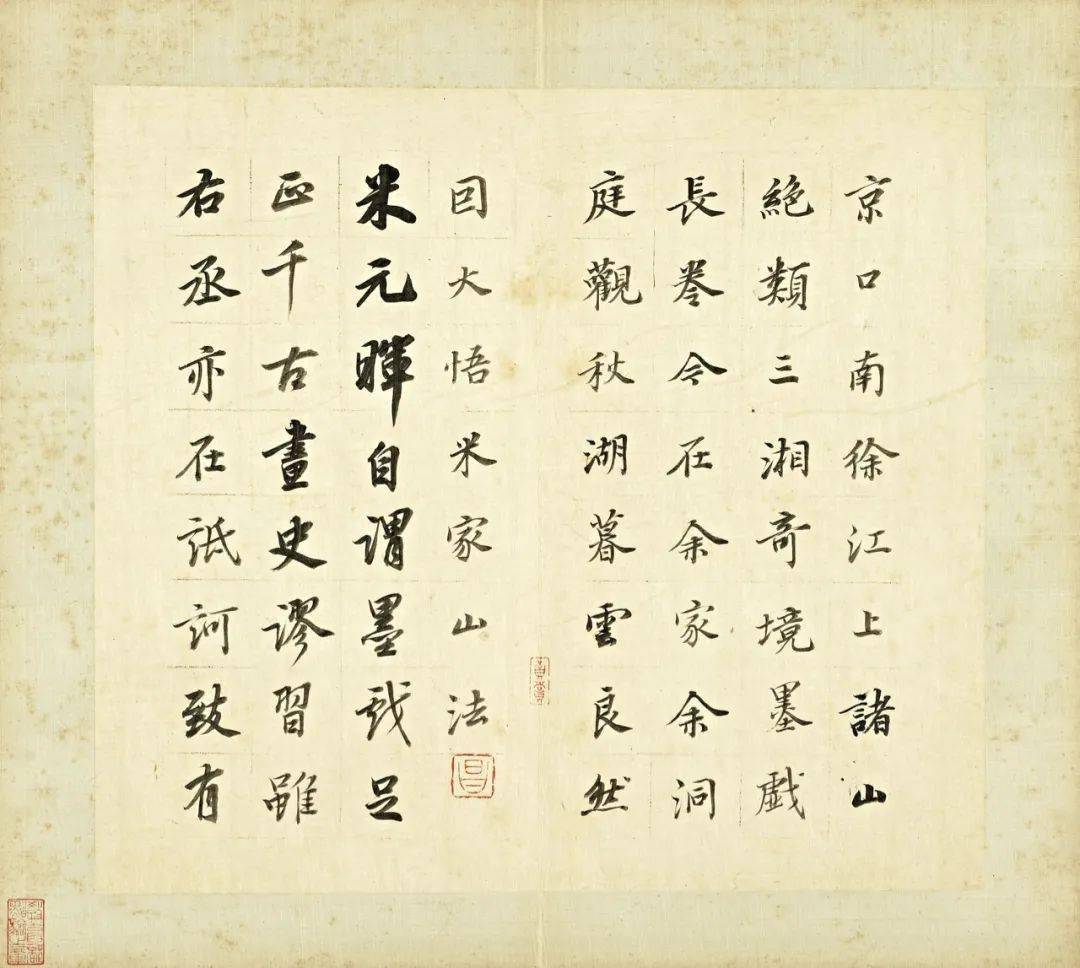 京口南徐江上諸山
絕類三湘奇境墨戲
長卷今在余家余洞
庭觀秋湖暮雲良然
因大悟米家山法
米元暉自謂墨戲足
正千古畫史謬習雖
右丞亦在詆訶致有